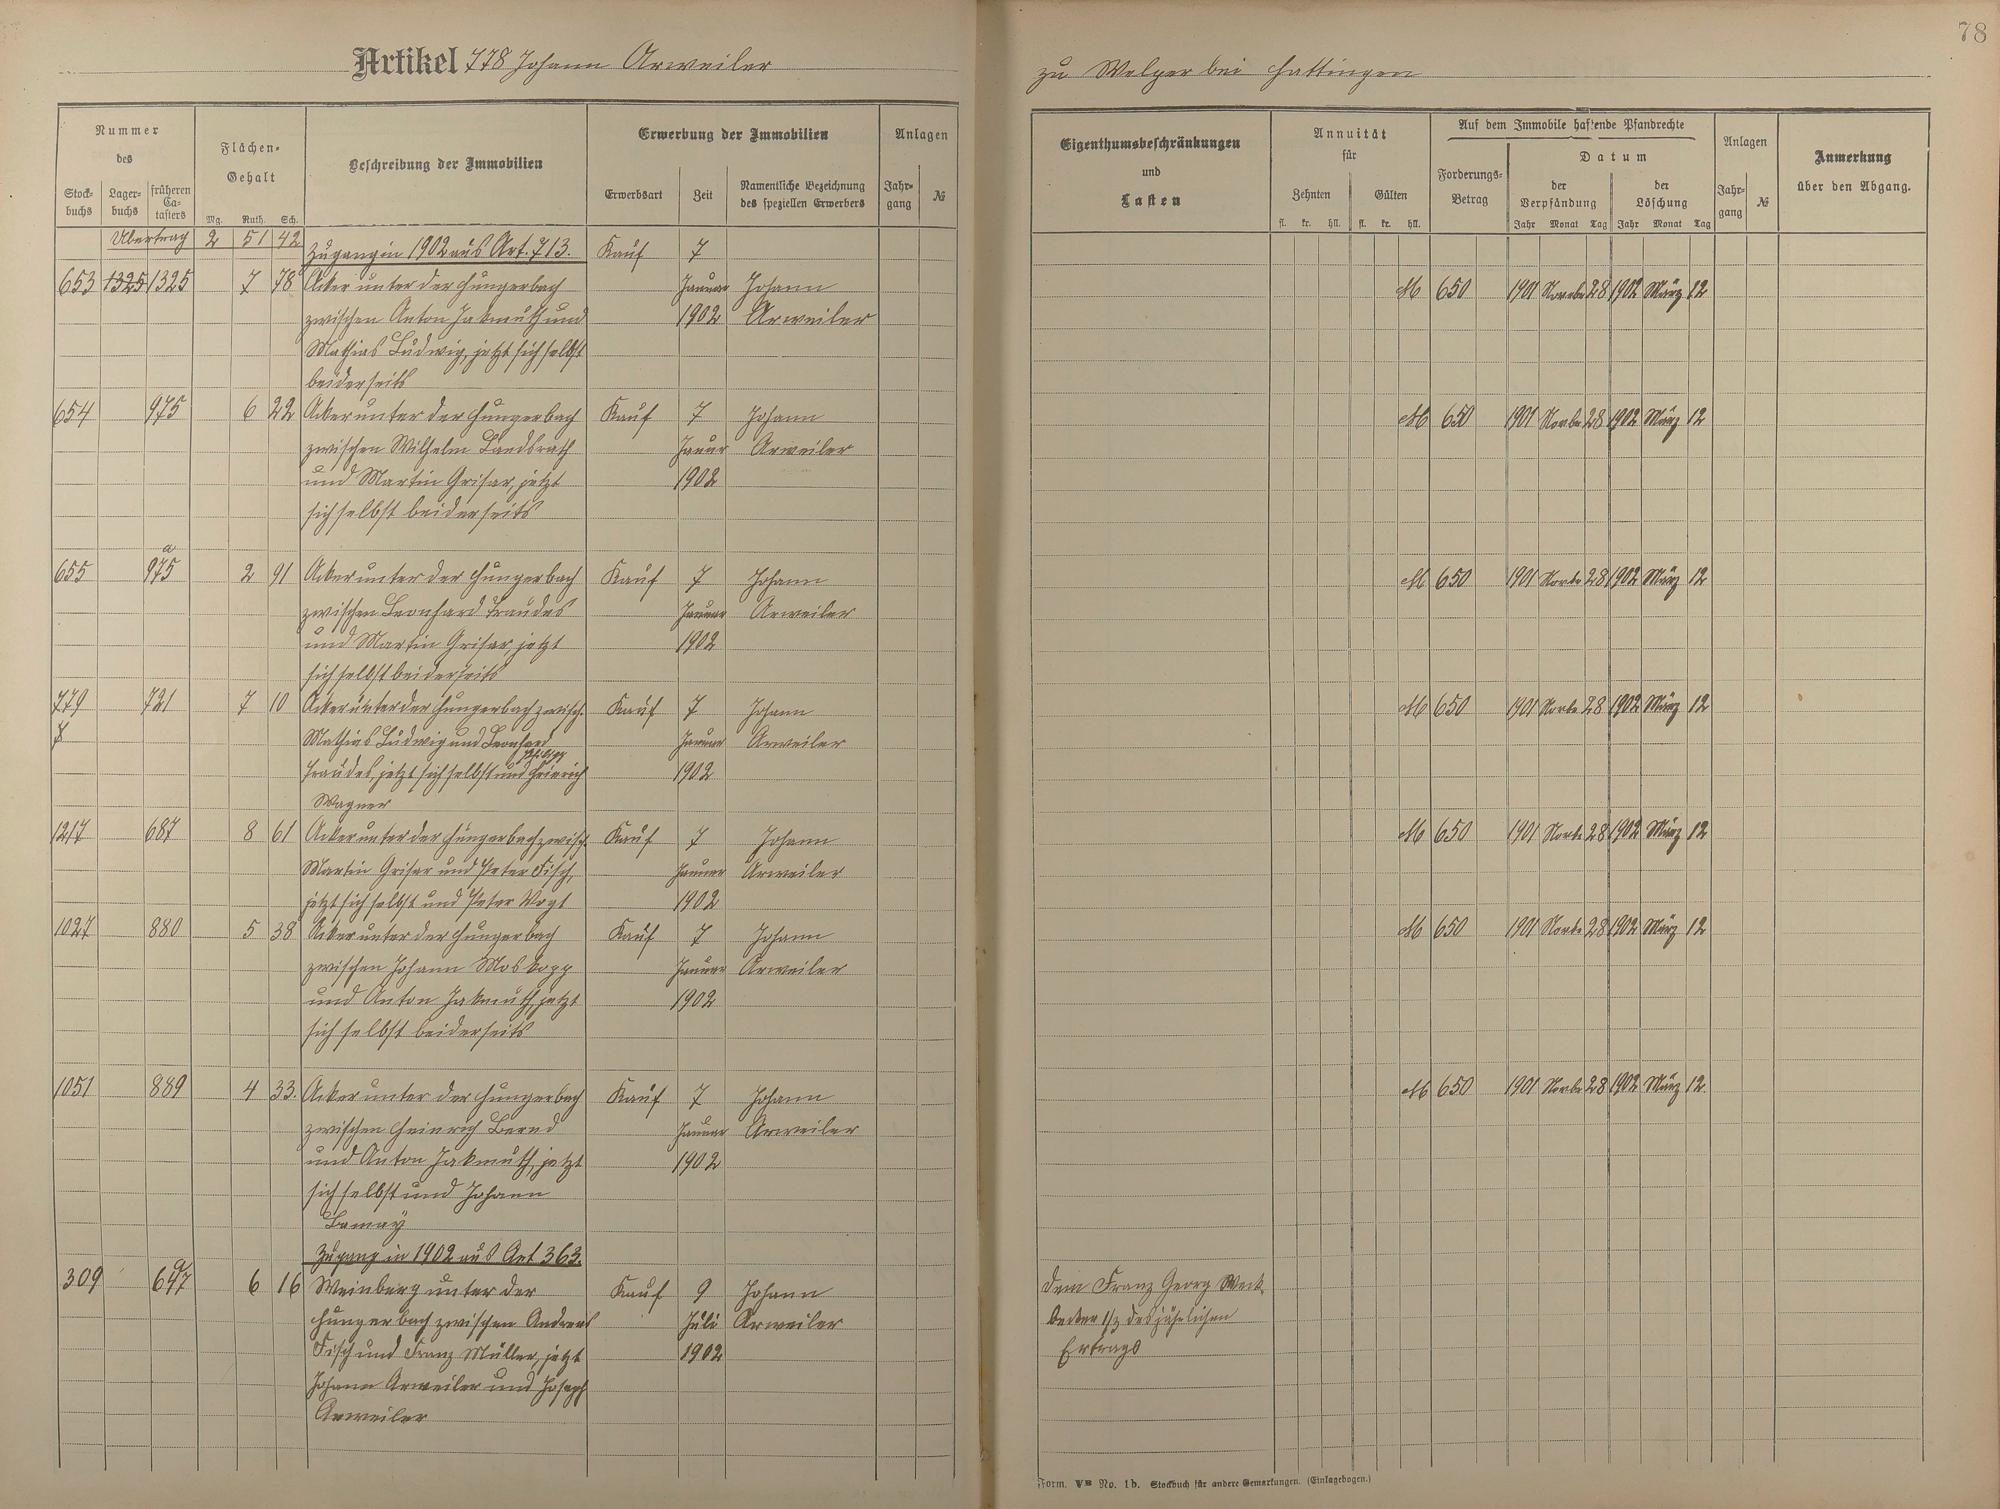 78
Artikel 778 Johann Arweiler
zu Welper bei Hattingen
Nummer
des
Stock-
buchs
Lager-
buchs
früheren
Ca-
tasters
Flächen-
Gehalt
Mg. Ruth. Sch.
Beschreibung der Immobilien
Erwerbung der Immobilien
Erwerbsart
Zeit
Namentliche Bezeichnung
des speziellen Erwerbers
Anlagen
Jahr-
gang
№
Eigenthumsbeschränkungen
und
Lasten
Annuität
für
Zehnten
Gülten
fl. kr. hll. fl. kr. hll.
Auf dem Immobile haftende Pfandrechte
Forderungs-
Betrag
Datum
der
Verpfändung
der
Löschung
Jahr Monat Tag Jahr Monat Tag
Anlagen
Jahr-
gang
№
Anmerkung
über den Abgang.
Übertrag 2 51 42
Zugang in 1902 aus Art. 713. Kauf 7
653 1325 1325 7 78 Acker unter der Hungerbach Januar Johann M 650 1901 Novbr 28 1902 März 12
zwischen Anton Jakmuth und 1902 Arweiler
Mathias Ludwig, jetzt sich selbst
beiderseits
654 975 6 22 Acker unter der Hungerbach Kauf 7 Johann M 650 1901 Novbr 28 1902 März 12
zwischen Wilhelm Landsrath Januar Arweiler
und Martin Griser, jetzt 1902
sich selbst beiderseits
a
655 975 2 91 Acker unter der Hungerbach Kauf 7 Johann M 650 1901 Novbr 28 1902 März 12
zwischen Leonhard Traudes Januar Arweiler
und Martin Griser, jetzt 1902
sich selbst beiderseits
779 721 7 10 Acker unter der Hungerbach zwisch. Kauf 7 Johann M 650 1901 Novbr 28 1902 März 12
Mathias Ludwig und Leonhard Januar Arweiler
Philipp
Traudes, jetzt sich selbst und Heinrich 1902
Wagner
1217 687 8 61 Acker unter der Hungerbach zwisch. Kauf 7 Johann M 650 1901 Novbr 28 1902 März 12
Martin Griser und Peter Fisch, Januar Arweiler
jetzt sich selbst und Peter Vogt 1902
1027 880 5 38 Acker unter der Hungerbach Kauf 7 Johann M 650 1901 Novbr 28 1902 März 12
zwischen Johann Moskopp Januar Arweiler
und Anton Jakmuth, jetzt 1902
sich selbst beiderseits
1051 889 4 33. Acker unter der Hungerbach Kauf 7 Johann M 650 1901 Novbr 28 1902 März 12.
zwischen Heinrich Bernd Januar Arweiler
und Anton Jakmuth, jetzt 1902
sich selbst und Johann
Lamay
Zugang in 1902 aus Art 363.
309 647 6 16 Weinberg unter der Kauf 9 Johann dem Franz Georg
Hungerbach zwischen Andreas Juli Arweiler 1/3 des jährlichen
Fisch und Franz Müller, jetzt 1902 Ertrags
Johann Arweiler und Joseph
Arweiler
Form. No. 1b. Stockbuch für andere Gemarkungen. (Einlagebogen.)